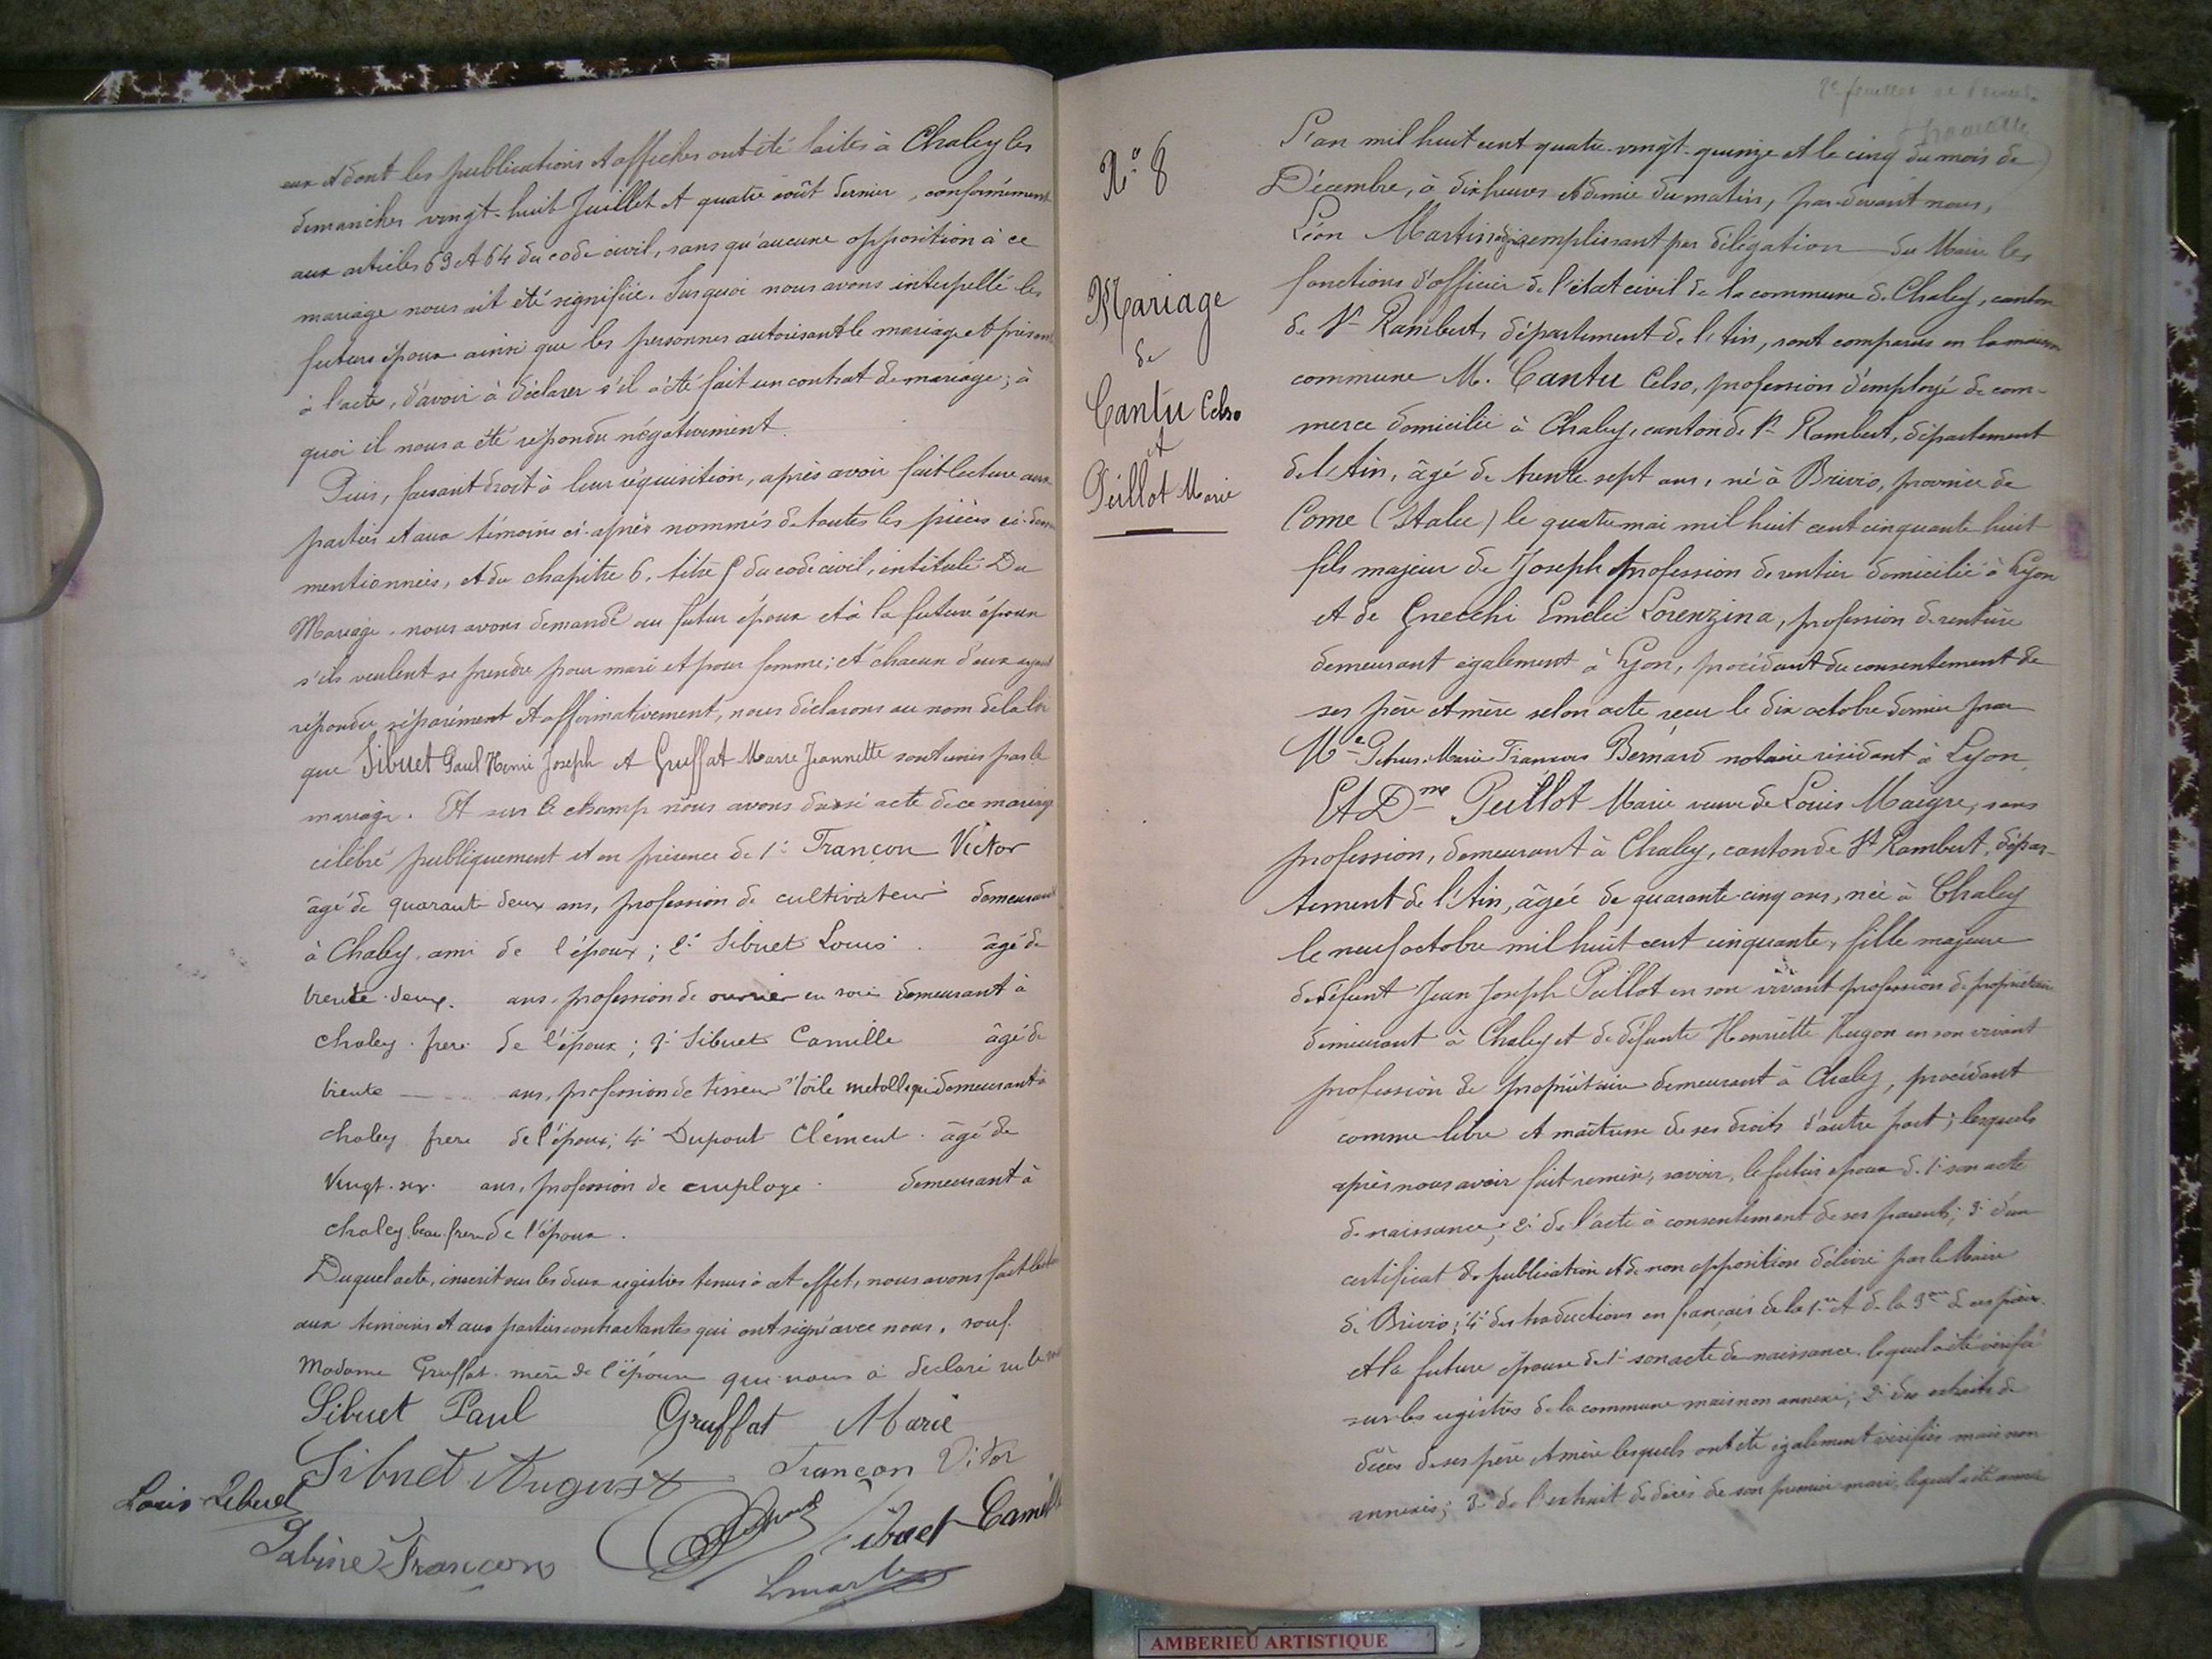 eux et dont les publications et affiches ont été faites à Chaley les
dimanches vingt-huit Juillet et quatre août dernier, conformément
aux articles 63 et 64 du code civil, sans qu'aucune opposition à ce
mariage nous ait été signifiée. Sur quoi nous avons interpellé les
futurs époux ainsi que les personnes autorisant le mariage et présent
à l'acte, d'avoir à déclarer s'il a été fait un contrat de mariage; à
quoi il nous a été repondu négativement.
Puis, faisant droit à leur réquisition, après avoir fait lecture aux
parties et aux témoins ci-après nommés de toutes les pièces ci-dessus
mentionnées, et du chapitre 6, titre 5 du code civil, intitulé Du
Mariage. nous avons demandé au futur époux et à la future épouse
s'ils veulent se prendre pour mari et pour femme; et chacun d'eux ayant
répondu séparément et affirmativement, nous déclarons au nom de la loi
que Sibuet Paul Henri Joseph et Gruffat Marie Jeannette sont unis par le
mariage. Et sur le champ nous avons dressé acte de ce mariage
célébré publiquement et en présence de 1° Françon Victor
âgé de quarante deux ans, profession de cultivateur demeurant
à Chaley, ami de l'époux; 2° Sibuet Louis âgé de
trente-deux. ans, profession de ouvrier en soie demeurant à
chaley. frere de l'époux; 3° Sibuet Camille âgé de
trente ans, profession de tisseur toile metallique demeurant à
chaley frere de l'époux; 4° Dupont Clément. âgé de
Vingt-six. ans, profession de employe. demeurant à
chaley beau frere de l'époux.
Duquel acte, inscrit sur les deux registres tenus à cet effet, nous avons fait lecture
aux témoins et aux parties contractantes qui ont signé avec nous, sauf
Madame Gruffat. mère de l'épouse qui nous a declaré ne le
Sibuet Paul Gruffat Marie
Sibuet August Françon Victor
Louis Sibuet Dupont Sibuet Camille
Sabine Françon
L Martin
N° 8
Mariage
de
Cantu Celso
et
Peillot Marie
L'an mil huit cent quatre-vingt-quinze et le cinq du mois de
Décembre, à dix heures et demie du matin, par-devant nous,
Léon Martin remplissant par délégation du Maire les
fonctions d'officier de l'état civil de la commune de Chaley, canton
de St Rambert, département de l'Ain, sont comparus en la maison
commune M. Cantu Celso, profession d'employé de com-
merce domicilié à Chaley, canton de St Rambert, département
de l'Ain, âgé de trente sept ans, né à Brivio, province de
Come (Italie) le quatre mai mil huit cent cinquante huit
fils majeur de Joseph profession de rentier domicilié à Lyon
et de Gnecchi Emélie Lorenzina, profession de rentière
demeurant également à Lyon, procédant du consentement de
ses père et mère selon acte reçu le dix octobre dernier par
Me Petrus Marie François Bernard notaire résidant à Lyon,
Et Dme Peillot Marie veuve de Louis Maigre, sans
profession, demeurant à Chaley, canton de St Rambert, dépar-
tement de l'Ain, âgée de quarante-cinq ans, née à Chaley
le neuf octobre mil huit cent cinquante, fille majeure
de défunt Jean Joseph Peillot en son vivant profession de propriétaire
demeurant à Chaley et de défunte Henriette Hugon en son vivant
profession de propriétaire demeurant à Chaley, procédant
comme libre et maîtresse de ses droits d'autre part; lesquels
après nous avoir fait remise, savoir, le futur époux de 1° son acte
de naissance; 2° de l'acte à consentement de ses parents; 3° d'un
certificat de publication et de non opposition délivré par le Maire
de Brivio; 4° des traductions en français de la 1re et de la 3me de ces pièces.
et la future épouse de 1° son acte de naissance. lequel a été vérifié
sur les registres de la commune mais non annexé; 2° des extraits de
décès de ses père et mère lesquels ont été également vérifiés mais non
annexés; 3° de l'extrait de décès de son premier mari, lequel a été annexé
AMBERIEU ARTISTIQUE